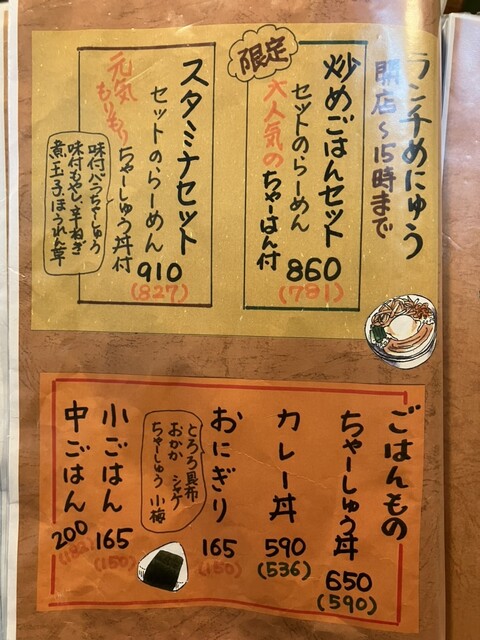 ランチめにゅう
開店〜15時まで
限定
炒めごはんセット
セットのらーめん
大人気のちゃーはん付
860
(781)
スタミナセット
セットのらーめん
元気もりもりちゃーしゅう丼付
910
(827)
味付バラちゃーしゅう
味付もやし、辛ねぎ
煮玉子、ほうれん草
ごはんもの
ちゃーしゅう丼
650
(590)
カレー丼
590
(536)
おにぎり
165
(150)
とろろ昆布
おかか シャケ
ちゃーしゅう 小梅
小ごはん
165
(150)
中ごはん
200